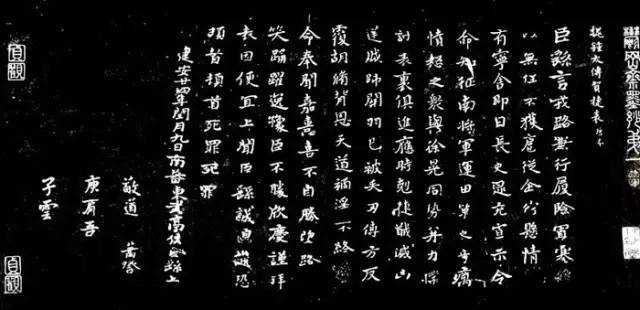 鬱岡齋墨妙
魏鍾太傅賀捷表
臣繇言戎路兼行履險冒寒臣
以無任不獲扈從企佇懸情無
有寧舍即日長史逯充宣示令
命知征南將軍運田單之奇厲
憤怒之眾與徐晃同勢并力撲
討表裏俱進應時剋捷馘滅凶
逆賊帥關羽已被矢刃傅方反
覆胡脩背恩天道禍淫不終厥
命奉聞嘉憙喜不自勝望路載
笑踊躍逸豫臣不勝欣慶謹拜
表因便宜上聞臣繇誠惶誠恐
頓首頓首死罪死罪
建安廿四年閏月九日南蕃東武亭侯臣繇上
敬道
庾肩吾
子雲
貞觀
貞觀